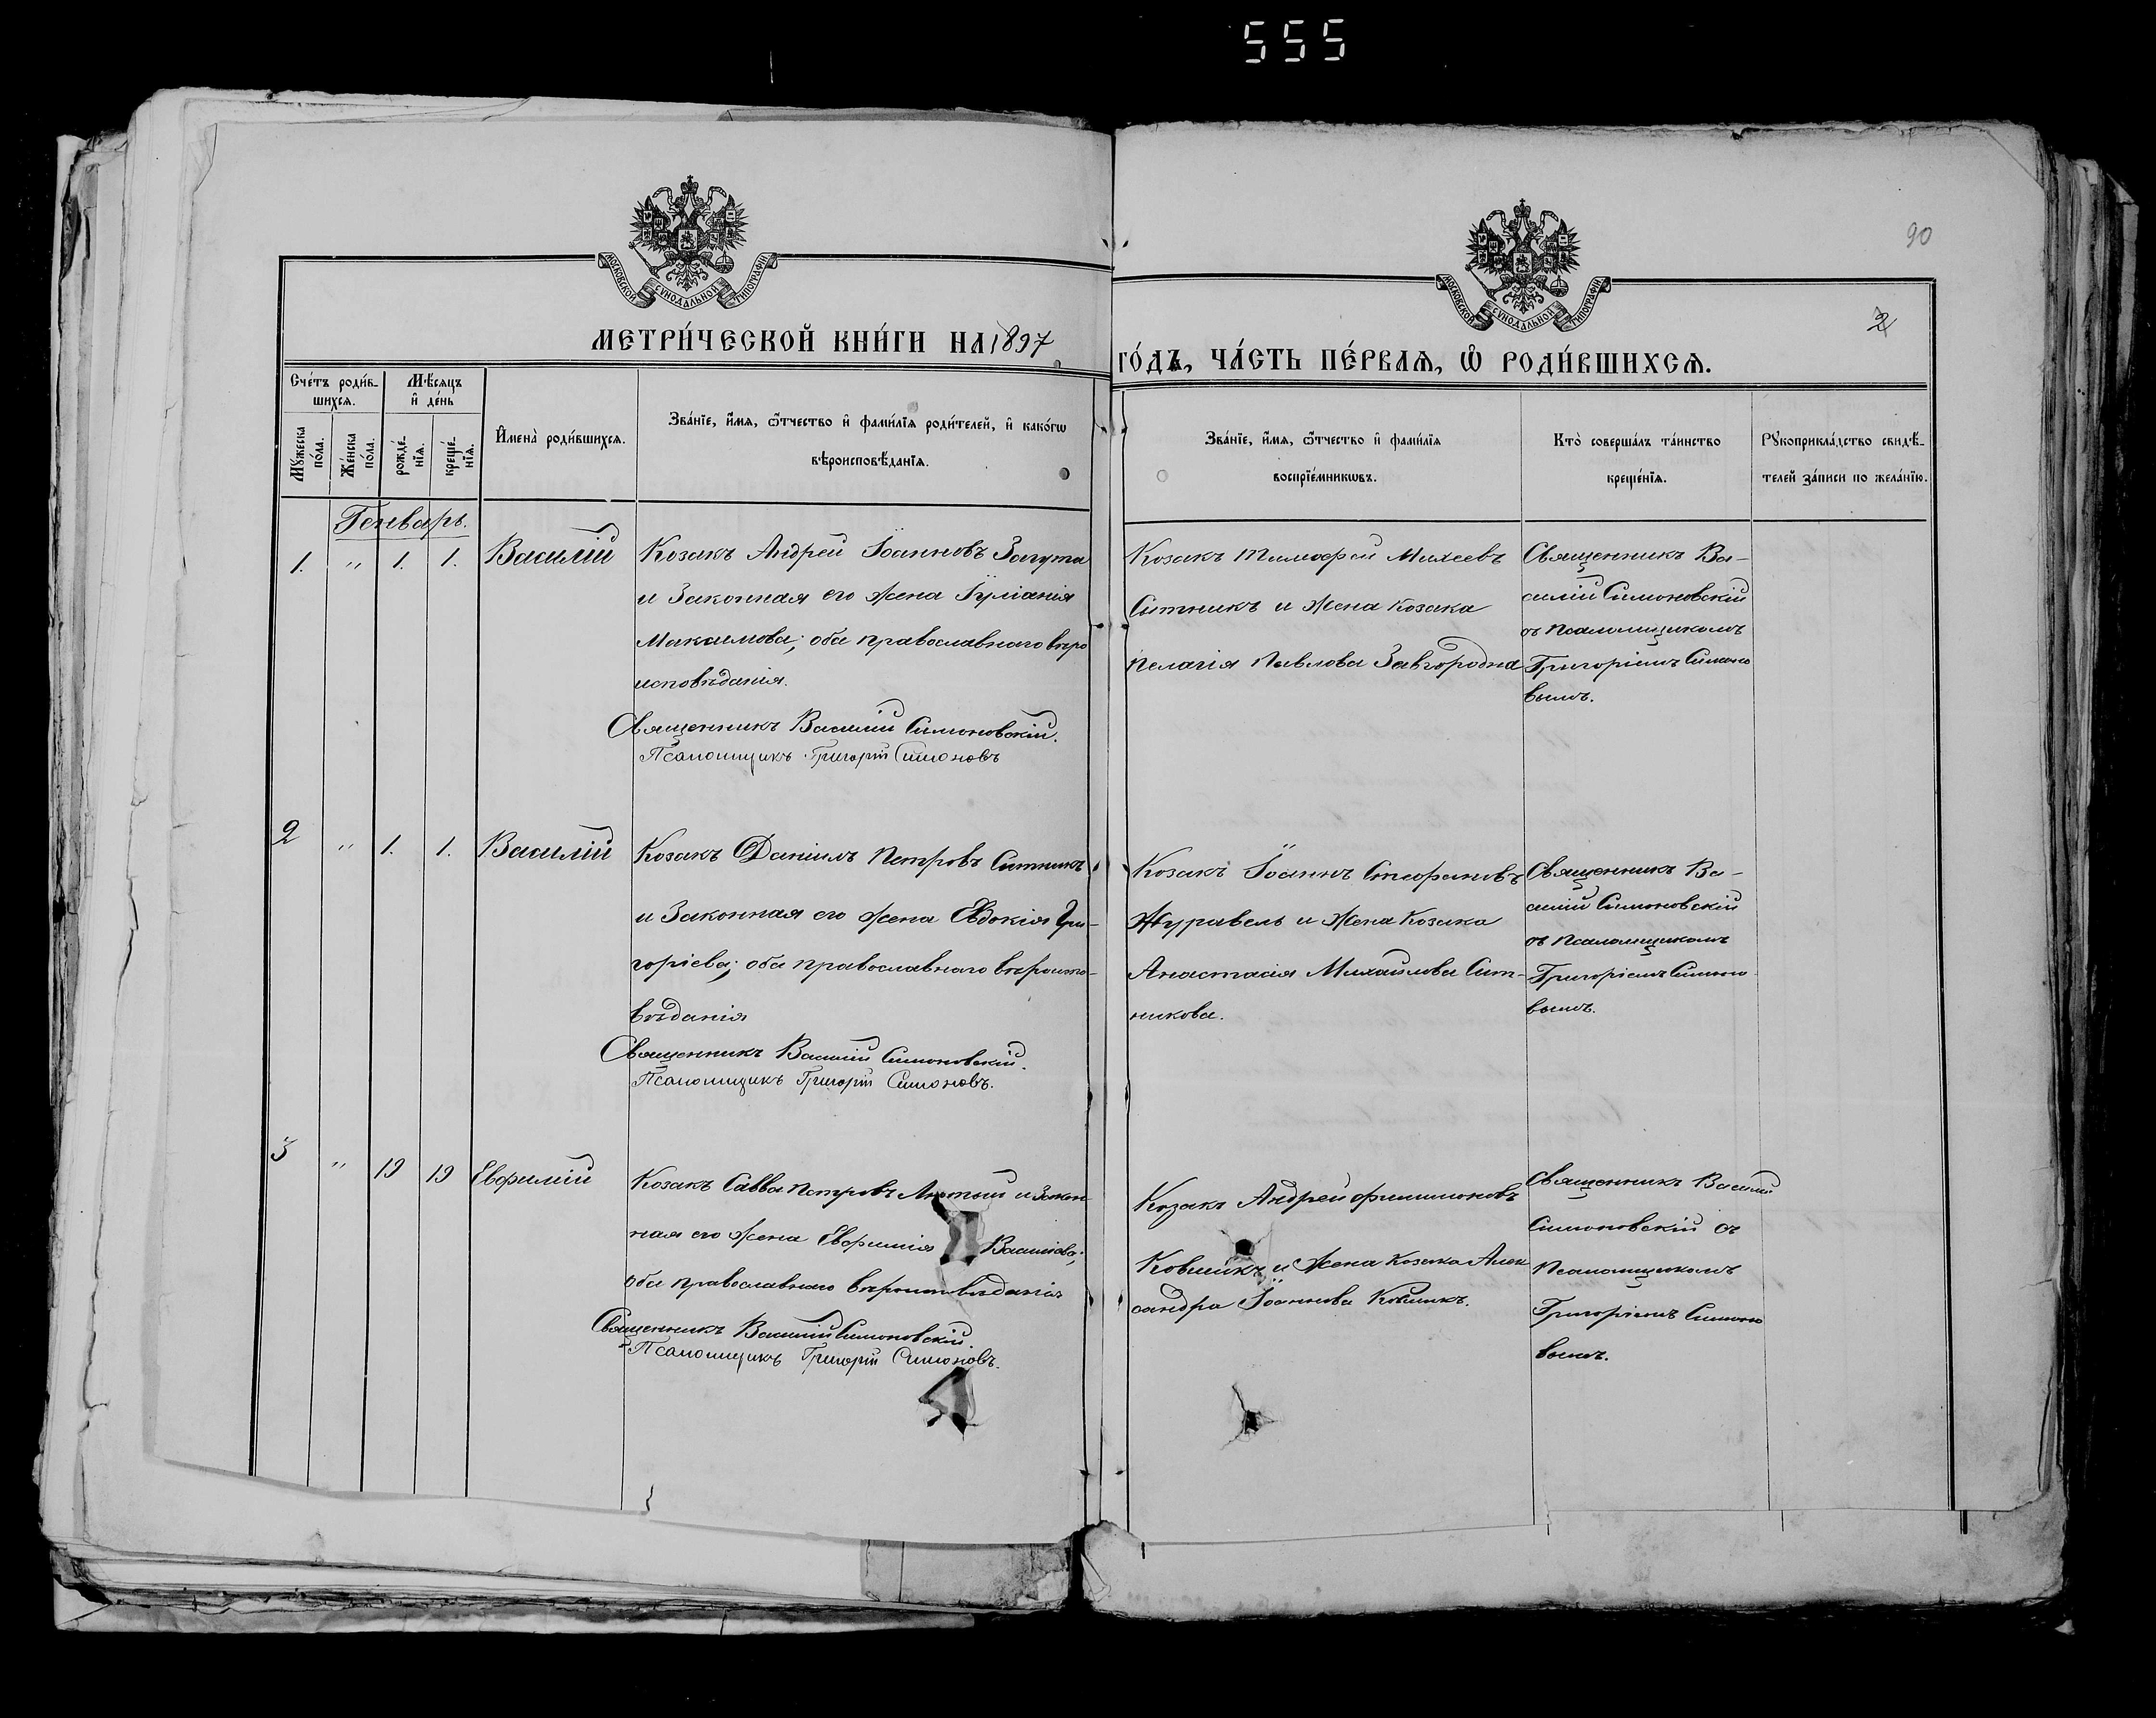 555
90
2
МОСКОВСКОЙ СѴНОДАЛЬНОЙ ТИПОГРАФІИ
МОСКОВСКОЙ СѴНОДАЛЬНОЙ ТИПОГРАФІИ
МЕТРИ́ЧЕСКОЙ КНИ́ГИ НА 1897
ГО́ДЪ, ЧА́СТЬ ПЕ́РВАѦ, Ѡ҆ РОДИ́ВШИХСѦ.
Сче́тъ роди́в-
шихсѧ.
Мѣ́сѧцъ
и҆ де́нь
Мꙋ́жеска
по́ла.
Же́нска
по́ла.
рожде́-
нїѧ.
креще́-
нїѧ.
И҆мена̀ роди́вшихсѧ.
Зва́нїе, и҆́мѧ, ѻ҆́тчество и҆ фами́лїѧ роди́телей, и҆ како́гѡ
вѣроисповѣ́данїѧ.
Зва́нїе, и҆́мѧ, ѻ҆́тчество и҆ фами́лїѧ
воспрїе́мникѡвъ.
Кто̀ соверша́лъ та́инство
креще́нїѧ.
Рꙋкоприкла́дство свидѣ́-
телей за́писи по жела́нїю.
Генварь.
1. " 1. 1. Василій
Козакъ Андрей Іоанновъ Загута
и Законная его жена Іуліанія
Максимова; оба православнаго вѣро
исповѣданія.
Священникъ Василій Симоновскій.
Псаломщикъ Григорій Симоновъ
Козакъ Тимофей Михеевъ
Ситникъ и жена козака
Пелагія Павлова Завгородня
Священникъ Ва-
силій Симоновскій
съ Псаломщикомъ
Григоріемъ Симоно
вымъ.
2 " 1. 1. Василій
Козакъ Даніилъ Петровъ Ситникъ
и Законная его жена Евдокія Гри-
горіева; оба православнаго вѣроиспо-
вѣданія
Священникъ Василій Симоновскій.
Псаломщикъ Григорій Симоновъ.
Козакъ Іоаннъ Стефановъ
Журавель и жена Козака
Анастасія Михайлова Сит-
никова.
Священникъ Ва-
силій Симоновскій
съ Псаломщикомъ
Григоріемъ Симоно-
вымъ.
3 " 19 19 Евфимій
Козакъ Савва Петровъ Лютый и Закон
ная его жена Евфимія Василіева;
оба православнаго вѣроисповѣданія
Священникъ Василій Симоновскій.
Псаломщикъ Григорій Симоновъ.
Козакъ Андрей Филимоновъ
Ковшикъ и жена Козака Алек
сандра Іоаннова Ковшикъ.
Священникъ Василій
Симоновскій съ
Псаломщикомъ
Григоріемъ Симоно
вымъ.